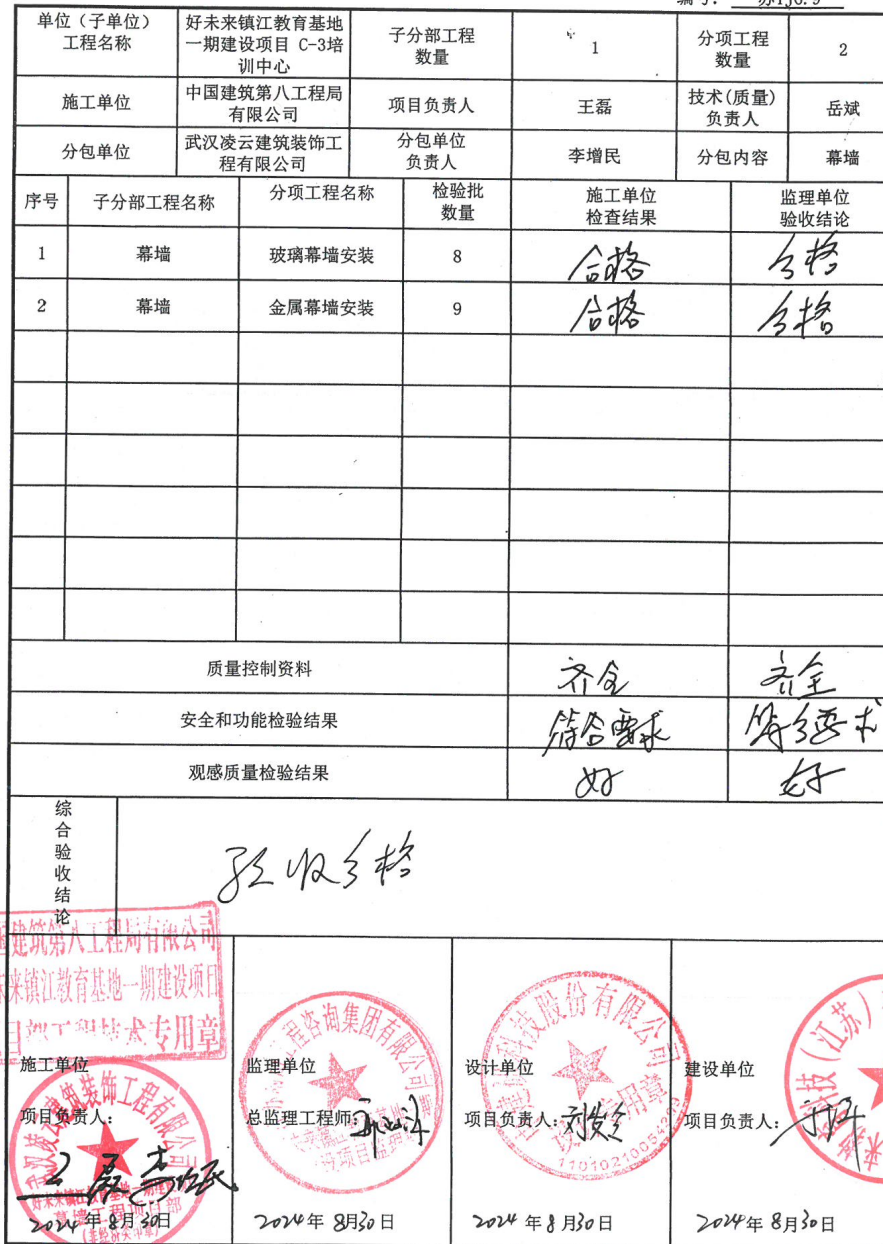 编号： 苏TJ6.9
单位（子单位）
工程名称
好未来镇江教育基地
一期建设项目 C-3培
训中心
子分部工程
数量
1
分项工程
数量
2
施工单位
中国建筑第八工程局
有限公司
项目负责人
王磊
技术(质量)
负责人
岳斌
分包单位
武汉凌云建筑装饰工
程有限公司
分包单位
负责人
李增民
分包内容
幕墙
序号
子分部工程名称
分项工程名称
检验批
数量
施工单位
检查结果
监理单位
验收结论
1
幕墙
玻璃幕墙安装
8
合格
合格
2
幕墙
金属幕墙安装
9
合格
合格
质量控制资料
齐全
齐全
安全和功能检验结果
符合要求
符合要求
观感质量检验结果
好
好
综合验收结论
验收合格
国建筑第八工程局有限公司
未来镇江教育基地一期建设项目
目部工程技术专用章
施工单位
项目负责人：
王磊 李增民
武汉凌云建筑装饰工程有限公司
好未来镇江教育基地一期建
幕墙工程项目部
2024年8月30日
监理单位
总监理工程师：
程咨询集团有限公司
2024年8月30日
设计单位
项目负责人：
科技股份有限公司
专用章
2024年8月30日
建设单位
项目负责人：
科技（江苏）
2024年8月30日